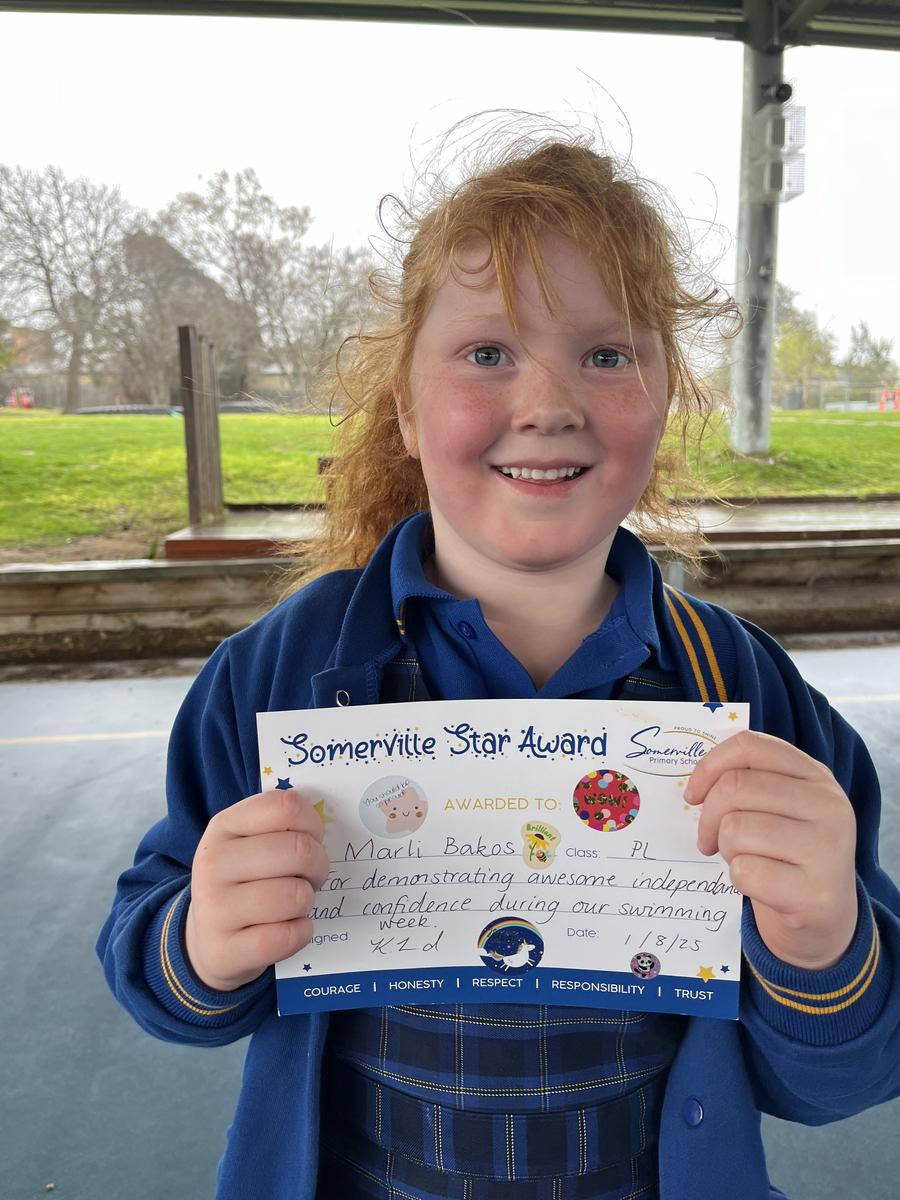 Somerville Star Award
PROUD TO SHINE
Somerville
Primary School
You should be so proud!
AWARDED TO:
WOW!
Brilliant
Marli Bakos Class: PL
for demonstrating awesome
and confidence during our swimming
week.
Signed: Date: 1/8/25
COURAGE | HONESTY | RESPECT | RESPONSIBILITY | TRUST